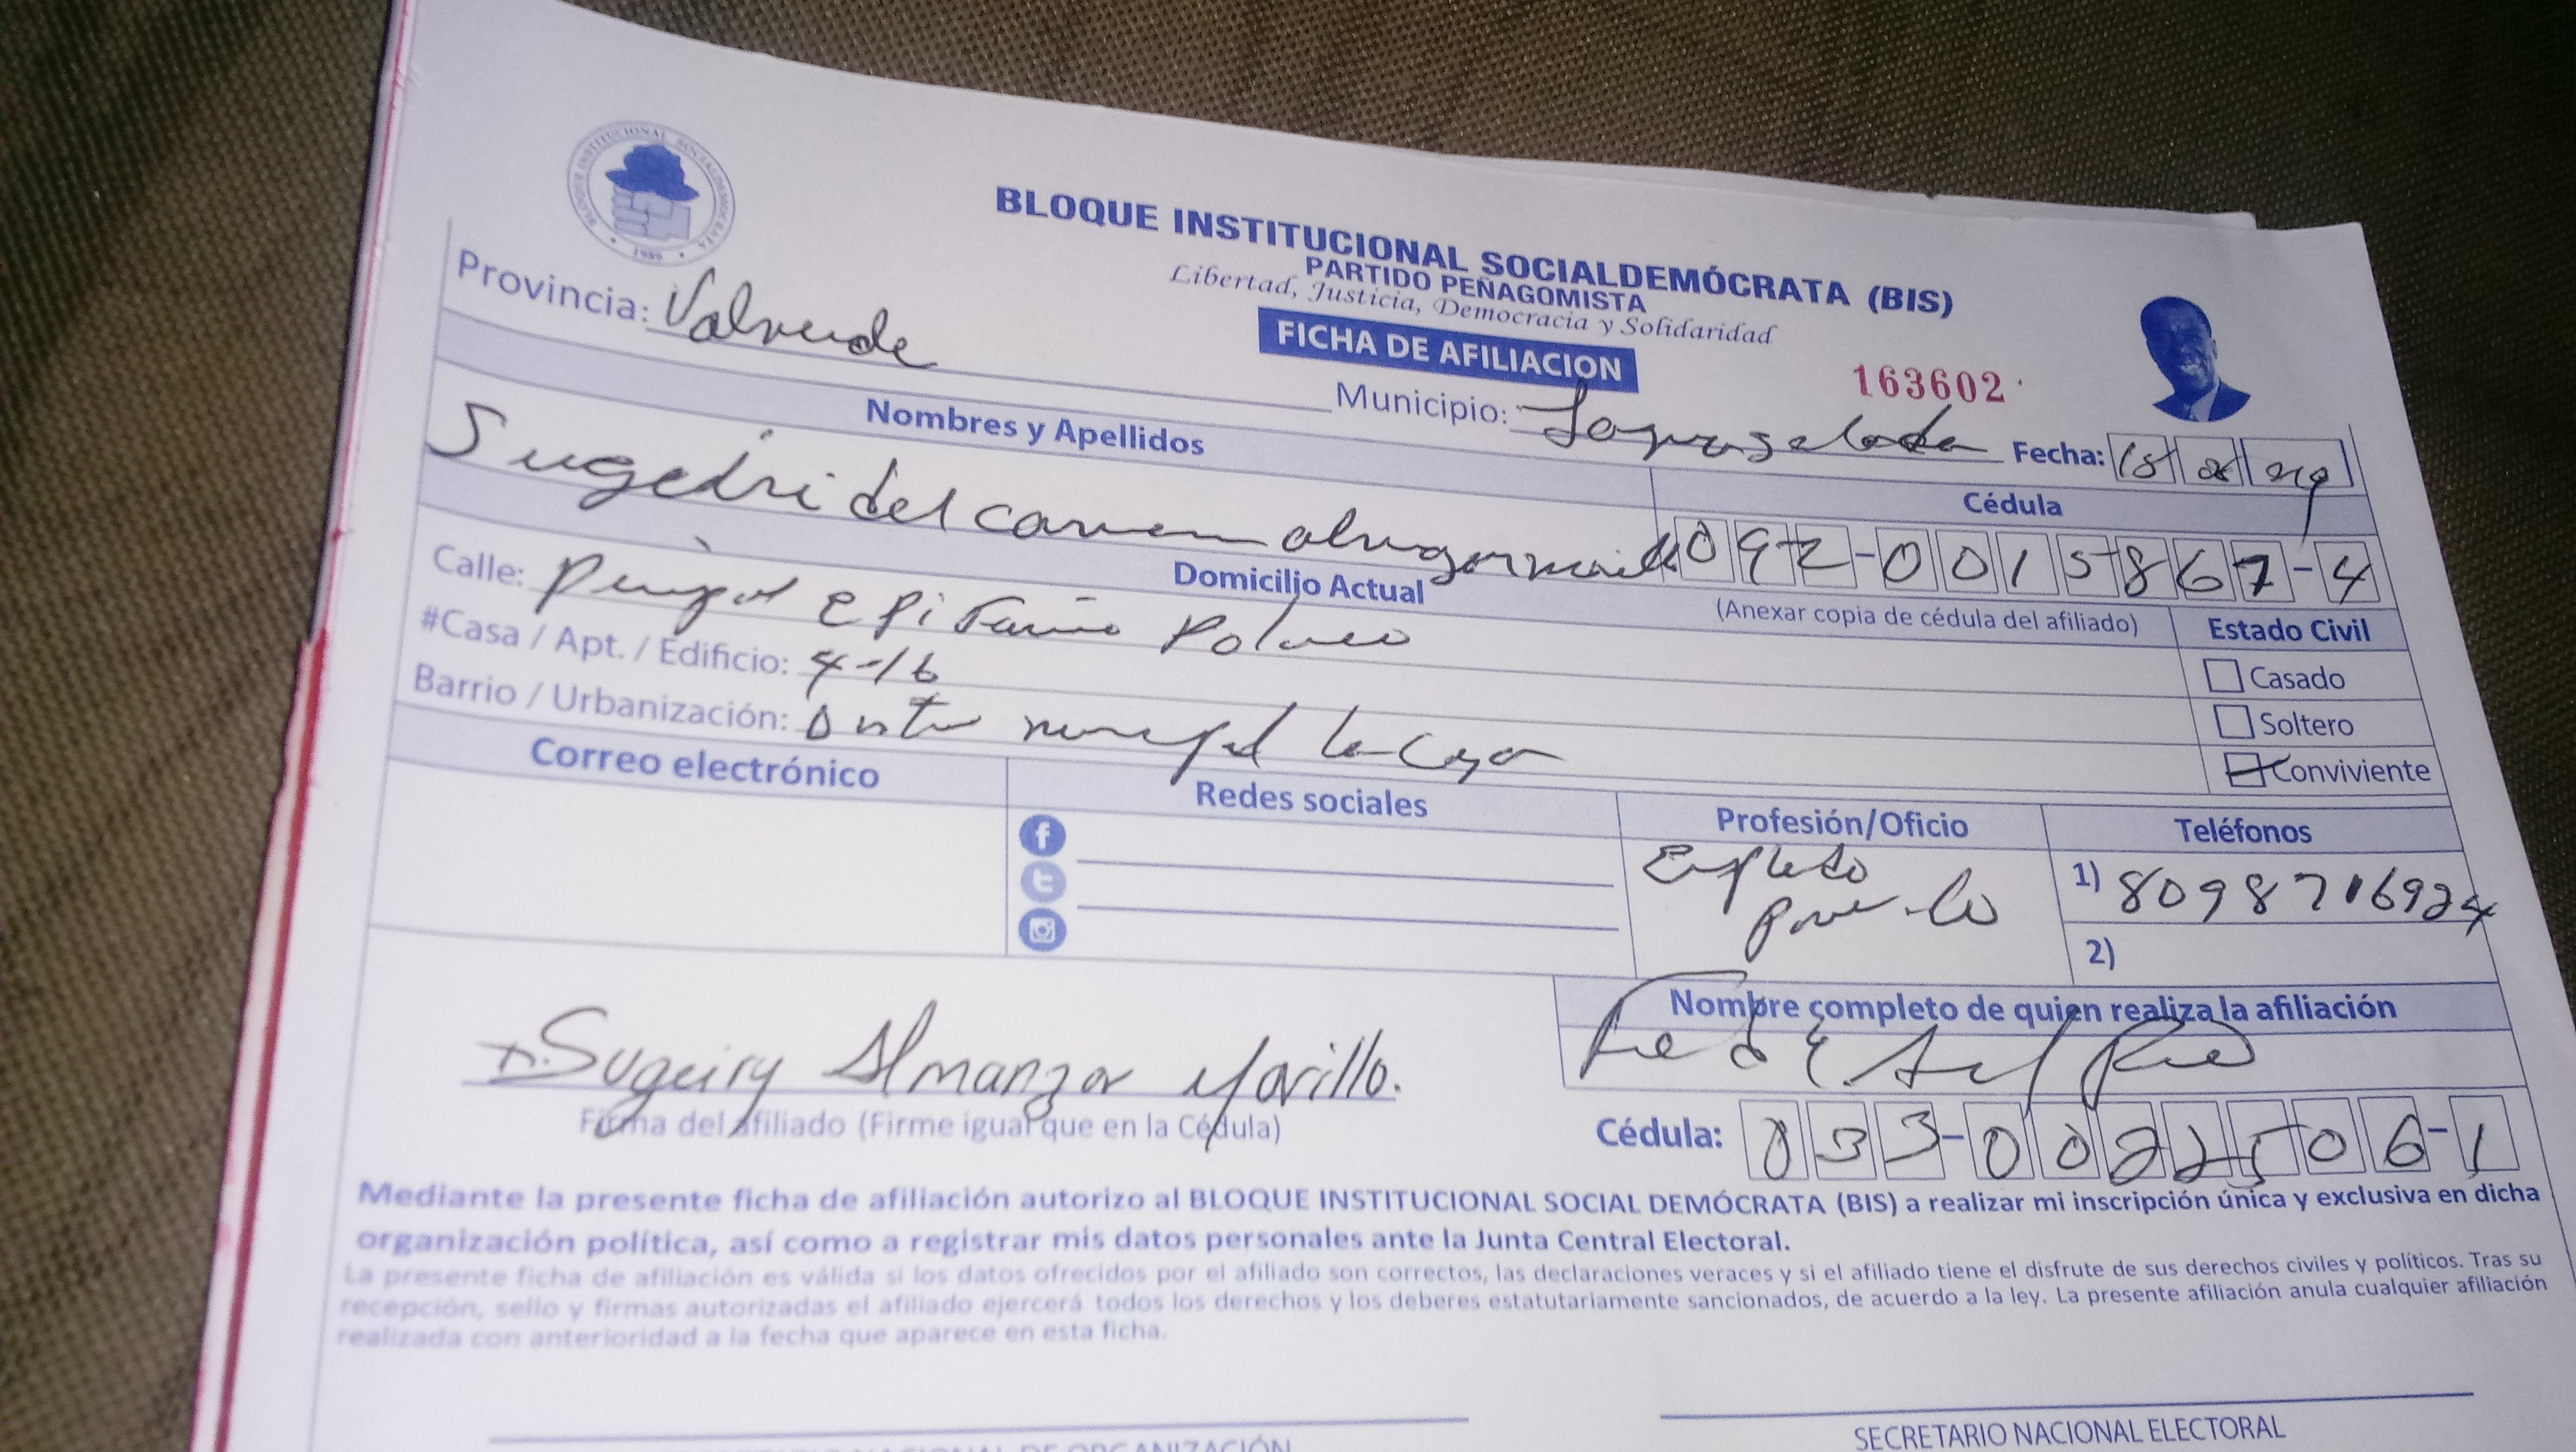 BLOQUE INSTITUCIONAL SOCIALDEMOCRATA
1989
BLOQUE INSTITUCIONAL SOCIALDEMÓCRATA (BIS)
PARTIDO PEÑAGOMISTA
Libertad, Justicia, Democracia y Solidaridad
FICHA DE AFILIACION
163602
Provincia: Valverde
Municipio:
Fecha:
Nombres y Apellidos
Cédula
del carmen
092-0015867-4
Domicilio Actual
(Anexar copia de cédula del afiliado)
Estado Civil
Calle: Polanco
#Casa / Apt. / Edificio: 4-16
Barrio / Urbanización:
Casado
Soltero
Conviviente
Correo electrónico
Redes sociales
Profesión/Oficio
Teléfonos
1) 8098716924
2)
Nombre completo de quien realiza la afiliación
Sugeiry Almanzar Morillo.
Firma del afiliado (Firme igual que en la Cédula)
Cédula: 033-0022506-1
Mediante la presente ficha de afiliación autorizo al BLOQUE INSTITUCIONAL SOCIAL DEMÓCRATA (BIS) a realizar mi inscripción única y exclusiva en dicha
organización política, así como a registrar mis datos personales ante la Junta Central Electoral.
La presente ficha de afiliación es válida si los datos ofrecidos por el afiliado son correctos, las declaraciones veraces y si el afiliado tiene el disfrute de sus derechos civiles y políticos. Tras su
recepción, sello y firmas autorizadas el afiliado ejercerá todos los derechos y los deberes estatutariamente sancionados, de acuerdo a la ley. La presente afiliación anula cualquier afiliación
realizada con anterioridad a la fecha que aparece en esta ficha.
NACIONAL DE ORGANIZACIÓN
SECRETARIO NACIONAL ELECTORAL